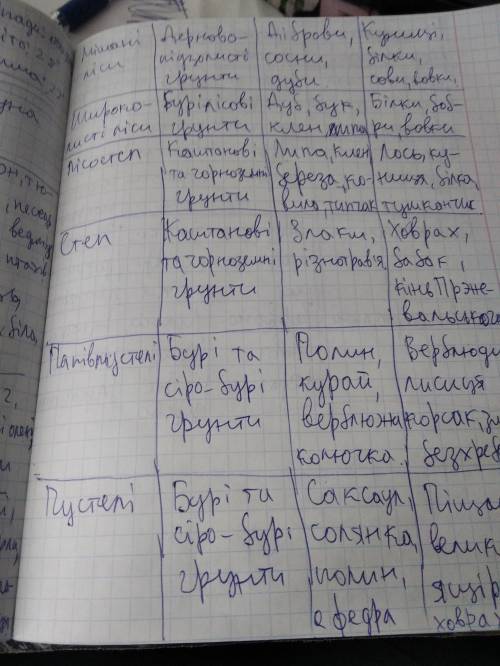 Мішані
ліси
Дерново-
підзолисті
грунти
Діброви,
сосни,
дуби
Куниці,
білки,
сови, вовки,
Широко-
листі ліси
Бурі лісові
грунти
Дуб, бук,
клен, липа
Білки, боб-
ри, вовки
Лісостеп
Каштанові
та чорноземні
грунти
Липа, клен
береза, ко-
вила, типчак
Лось, ку-
ниця, білка,
тушканчик
Степ
Каштанові
та чорноземні
грунти
Злаки,
різнотрав'я
Ховрах,
бабак,
кінь Прже-
вальського
Напівпустелі
Бурі та
сіро-бурі
грунти
Полин,
курай,
верблюжа
колючка.
Верблюди
лисиця
корсак,
безхреб
Пустелі
Бурі та
сіро-бурі
грунти
Саксаул,
солянка,
полин,
ефедра
Піща
велик
ящір
ховрах